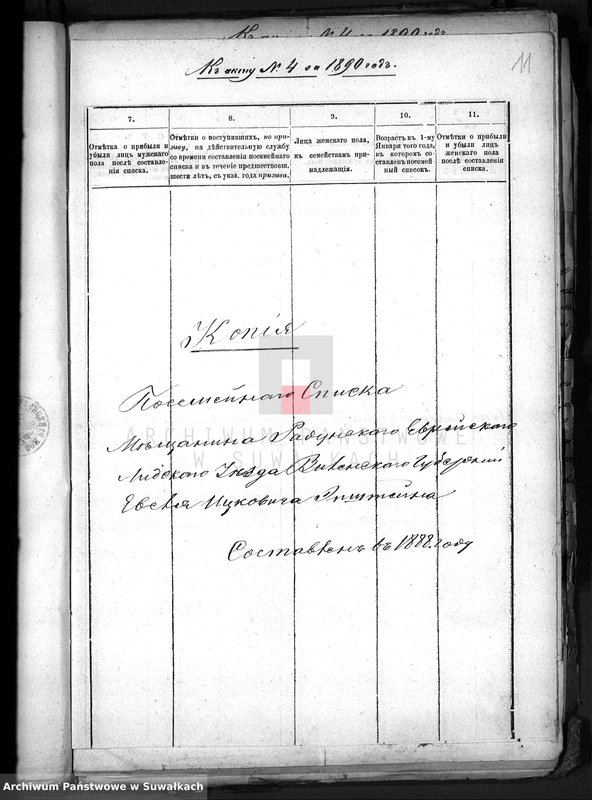 Къ акту № 4 за 1890 годъ.
11
7. 8. 9. 10. 11.
Отмѣтка о прибыли и убыли лицъ мужскаго пола послѣ составленія списка.
Отмѣтки о поступившихъ, по призыву, на дѣйствительную службу со времени составленія посемейнаго списка и въ теченіе предшествовш. шести лѣтъ, съ указ. года призыва.
Лица женскаго пола, къ семействамъ принадлежащія.
Возрастъ къ 1-му Января того года, въ которомъ составленъ посемейный списокъ.
Отмѣтки о прибыли и убыли лицъ женскаго пола послѣ составленія списка.
Копія
Посемейнаго Списка
Мѣщанина Радунскаго Еврейскаго
Лидскаго Уѣзда Виленской Губерніи
Евсея Ицковича Эпштейна
Составленъ въ 1888 году
ARCHIWUM PAŃSTWOWE
W SUWAŁKACH
Archiwum Państwowe w Suwałkach